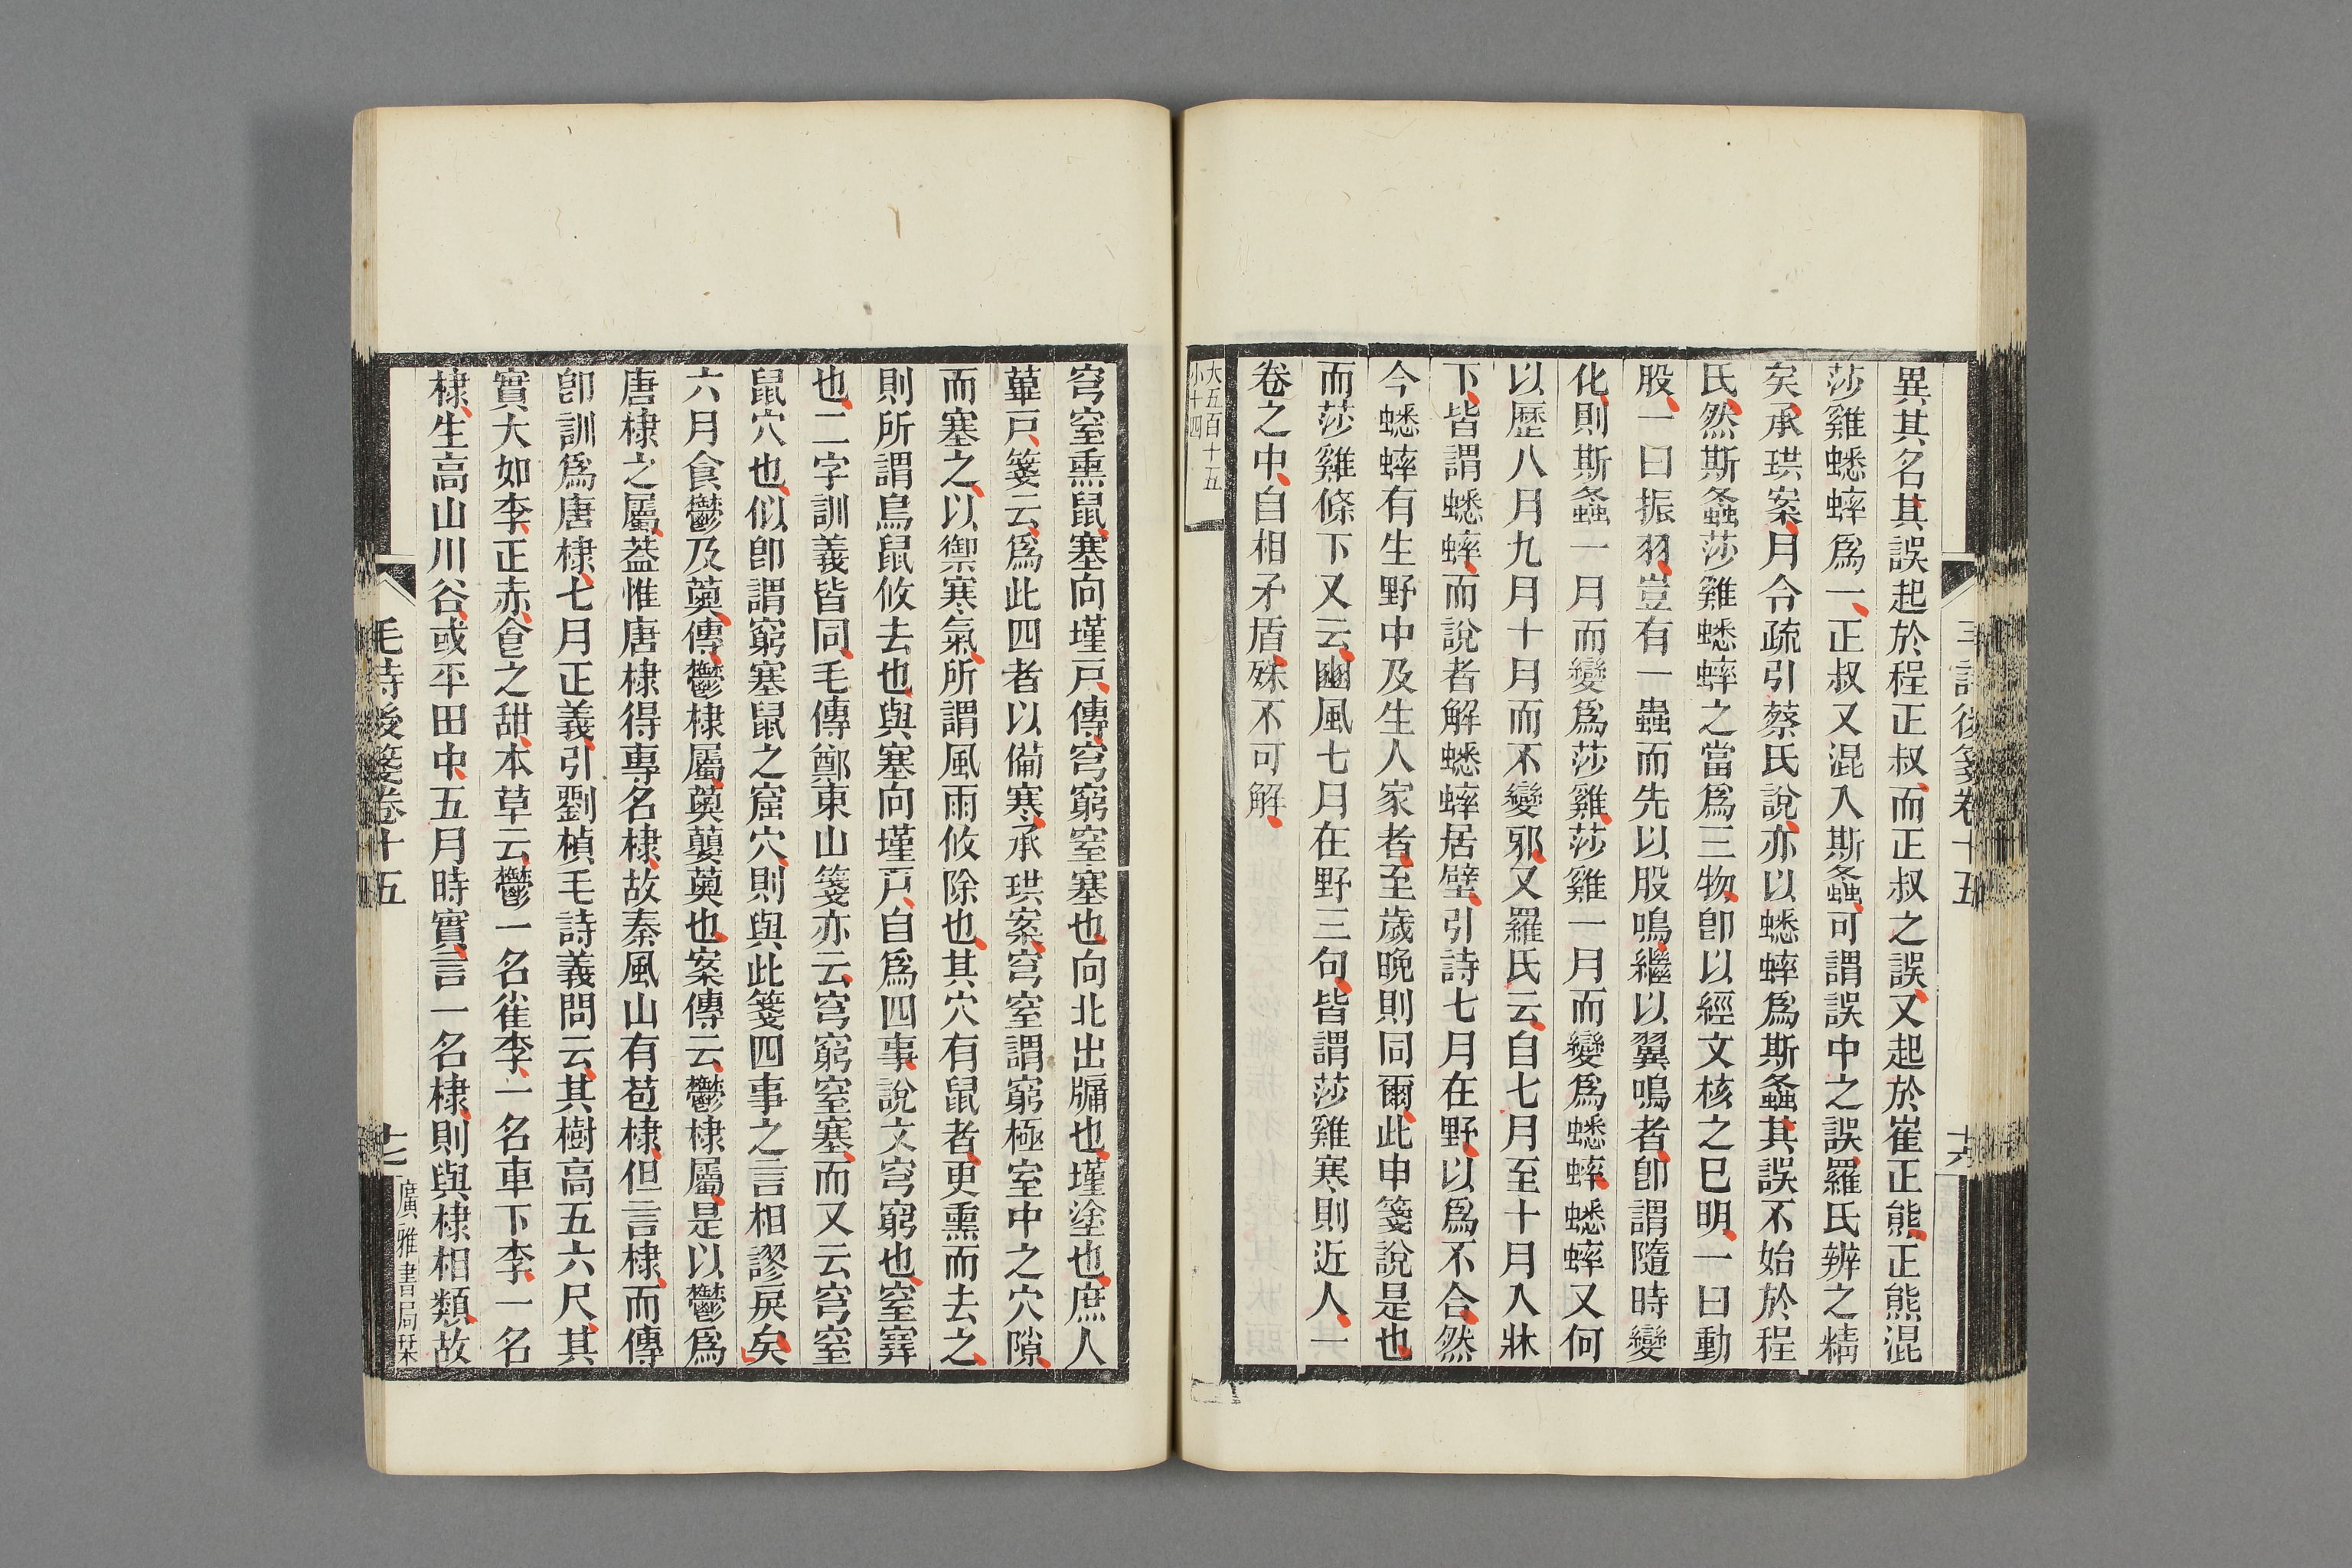 異其名其誤起於程正叔而正叔之誤又起於崔正熊正熊混
莎雞蟋蟀爲一正叔又混入斯螽可謂誤中之誤羅氏辨之精
矣承珙案月令疏引蔡氏說亦以蟋蟀爲斯螽其誤不始於程
氏然斯螽莎雞蟋蟀之當爲三物卽以經文核之已明一曰動
股一曰振羽豈有一蟲而先以股鳴繼以翼鳴者卽謂隨時變
化則斯螽一月而變爲莎雞莎雞一月而變爲蟋蟀蟋蟀又何
以歷八月九月十月而不變邪又羅氏云自七月至十月入牀
下皆謂蟋蟀而說者解蟋蟀居壁引詩七月在野以爲不合然
今蟋蟀有生野中及生人家者至歲晚則同爾此申箋說是也
而莎雞條下又云豳風七月在野三句皆謂莎雞寒則近人一
卷之中自相矛盾殊不可解
大五百十五
小十四
穹窒熏鼠塞向墐戸傳穹窮窒塞也向北出牖也墐塗也庶人
蓽戸箋云爲此四者以備寒承珙案穹窒謂窮極室中之穴隙
而塞之以禦寒氣所謂風雨攸除也其穴有鼠者更熏而去之
則所謂鳥鼠攸去也與塞向墐戸自爲四事說文穹窮也窒㝪
也二字訓義皆同毛傳鄭東山箋亦云穹窮窒塞而又云穹窒
鼠穴也似卽謂窮塞鼠之窟穴則與此箋四事之言相謬戾矣
六月食鬱及薁傳鬱棣屬薁蘡薁也案傳云鬱棣屬是以鬱爲
唐棣之屬葢惟唐棣得專名棣故秦風山有苞棣但言棣而傳
卽訓爲唐棣七月正義引劉楨毛詩義問云其樹高五六尺其
實大如李正赤食之甜本草云鬱一名雀李一名車下李一名
棣生高山川谷或平田中五月時實言一名棣則與棣相類故
毛詩後箋卷十五
十七
廣雅書局栞